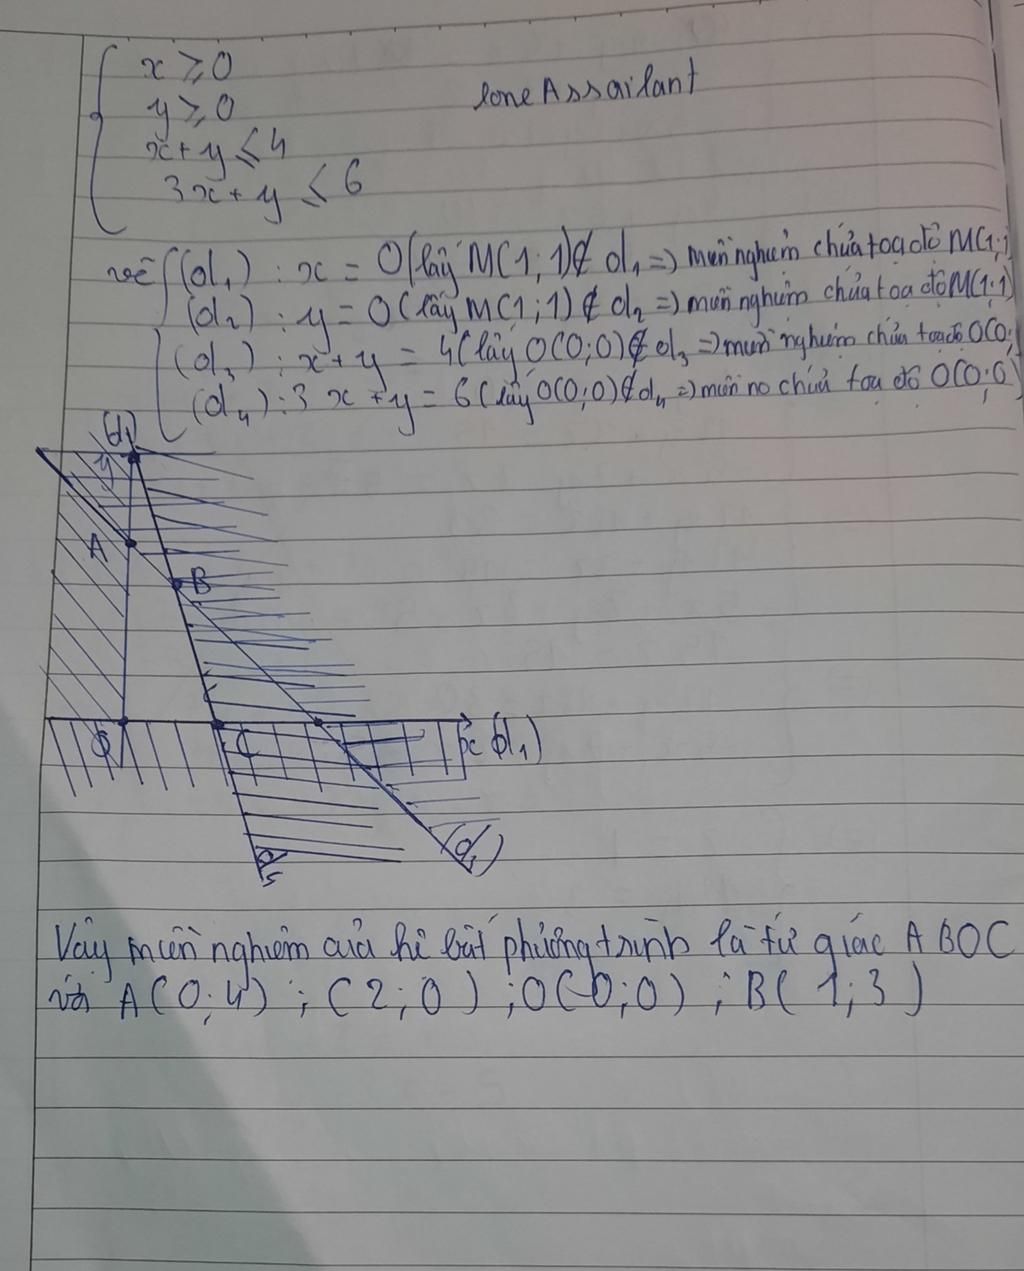 x ≥ 0
loneAssailant
y ≥ 0
x + y ≤ 4
3x + y ≤ 6
vẽ (d₁) : x = 0 (lấy M(1;1) ∉ d₁ => miền nghiệm chứa toạ độ M(1;1)
(d₂) : y = 0 (lấy M(1;1) ∉ d₂ => miền nghiệm chứa toạ độ M(1;1)
(d₃) : x + y = 4 (lấy O(0;0) ∉ d₃ => miền nghiệm chứa toạ độ O(0;
(d₄) : 3x + y = 6 (lấy O(0;0) ∉ d₄ => miền no chứa toạ độ O(0;0)
(d₁)
y
A
B
O
C
x (d₁)
d₄
(d₃)
Vậy miền nghiệm của hệ bất phương trình là tứ giác ABOC
với A(0;4) ; C(2;0) ; O(0;0) ; B(1;3)